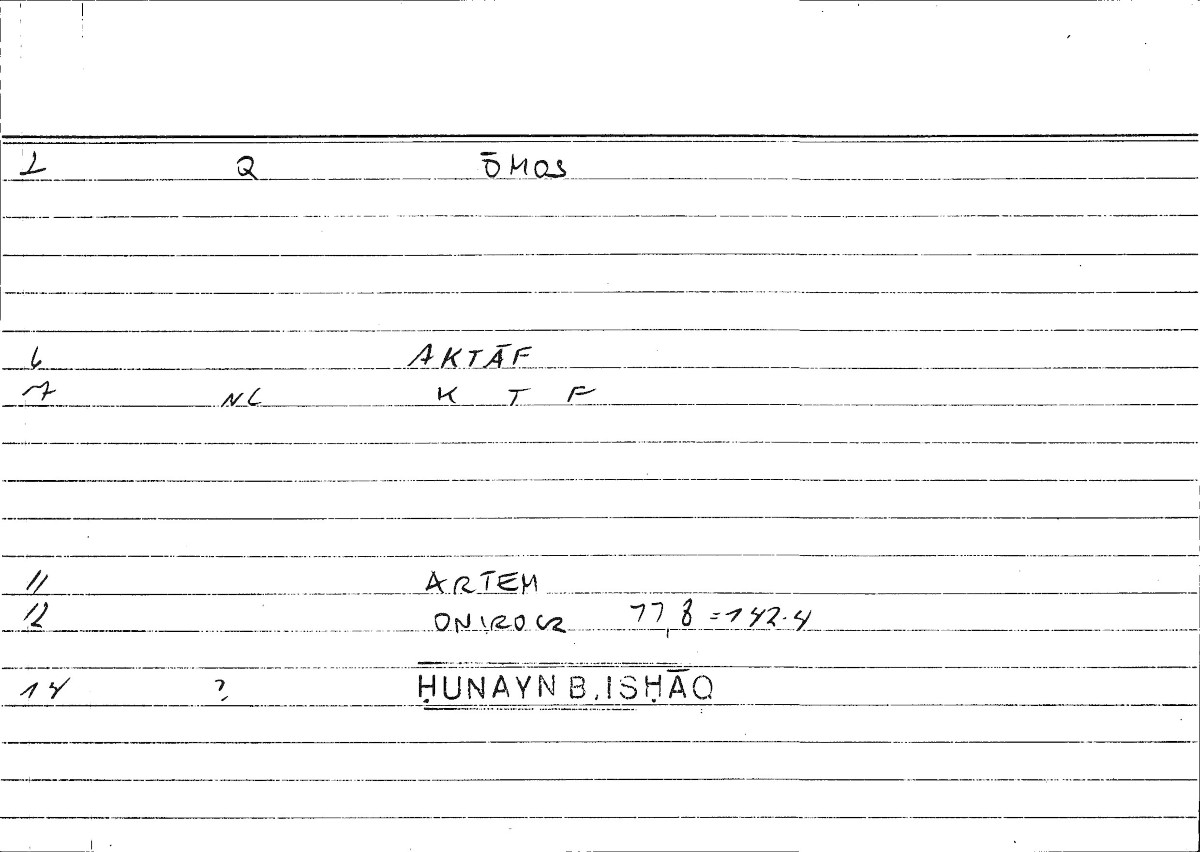 1 Q ŌMOS
6 AKTĀF
7 NC K T F
11 ARTEM
12 ONIROCR 77,8 = 142.4
14 ? ḤUNAYN B. ISḤĀQ